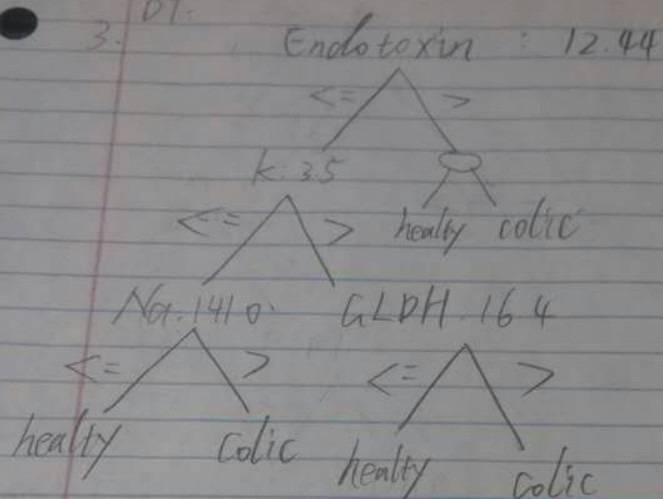 DT.
3. Endotoxin : 12.44
<= >
K: 35
healty colic
<= >
Na: 141 0. GLDH. 16 4
<= > <= >
healty Colic healty colic